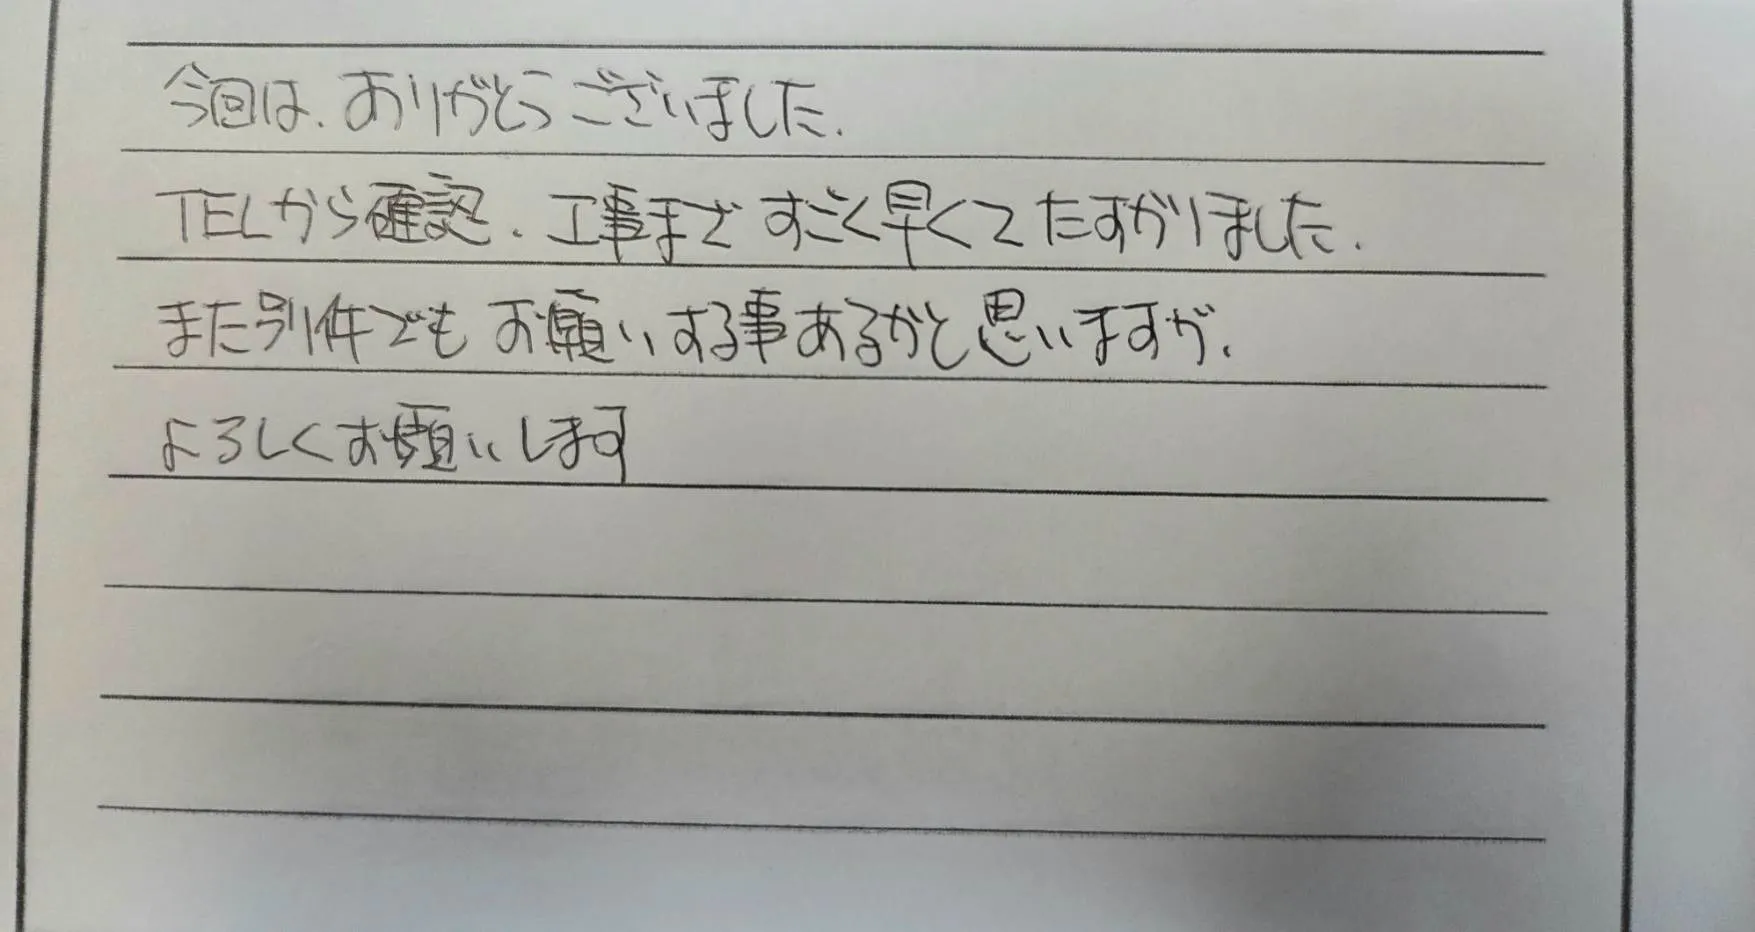 今回は、ありがとうございました.
TELから確認、工事まですごく早くてたすかりました.
また別件でもお願いする事あるかと思いますが、
よろしくお願いします